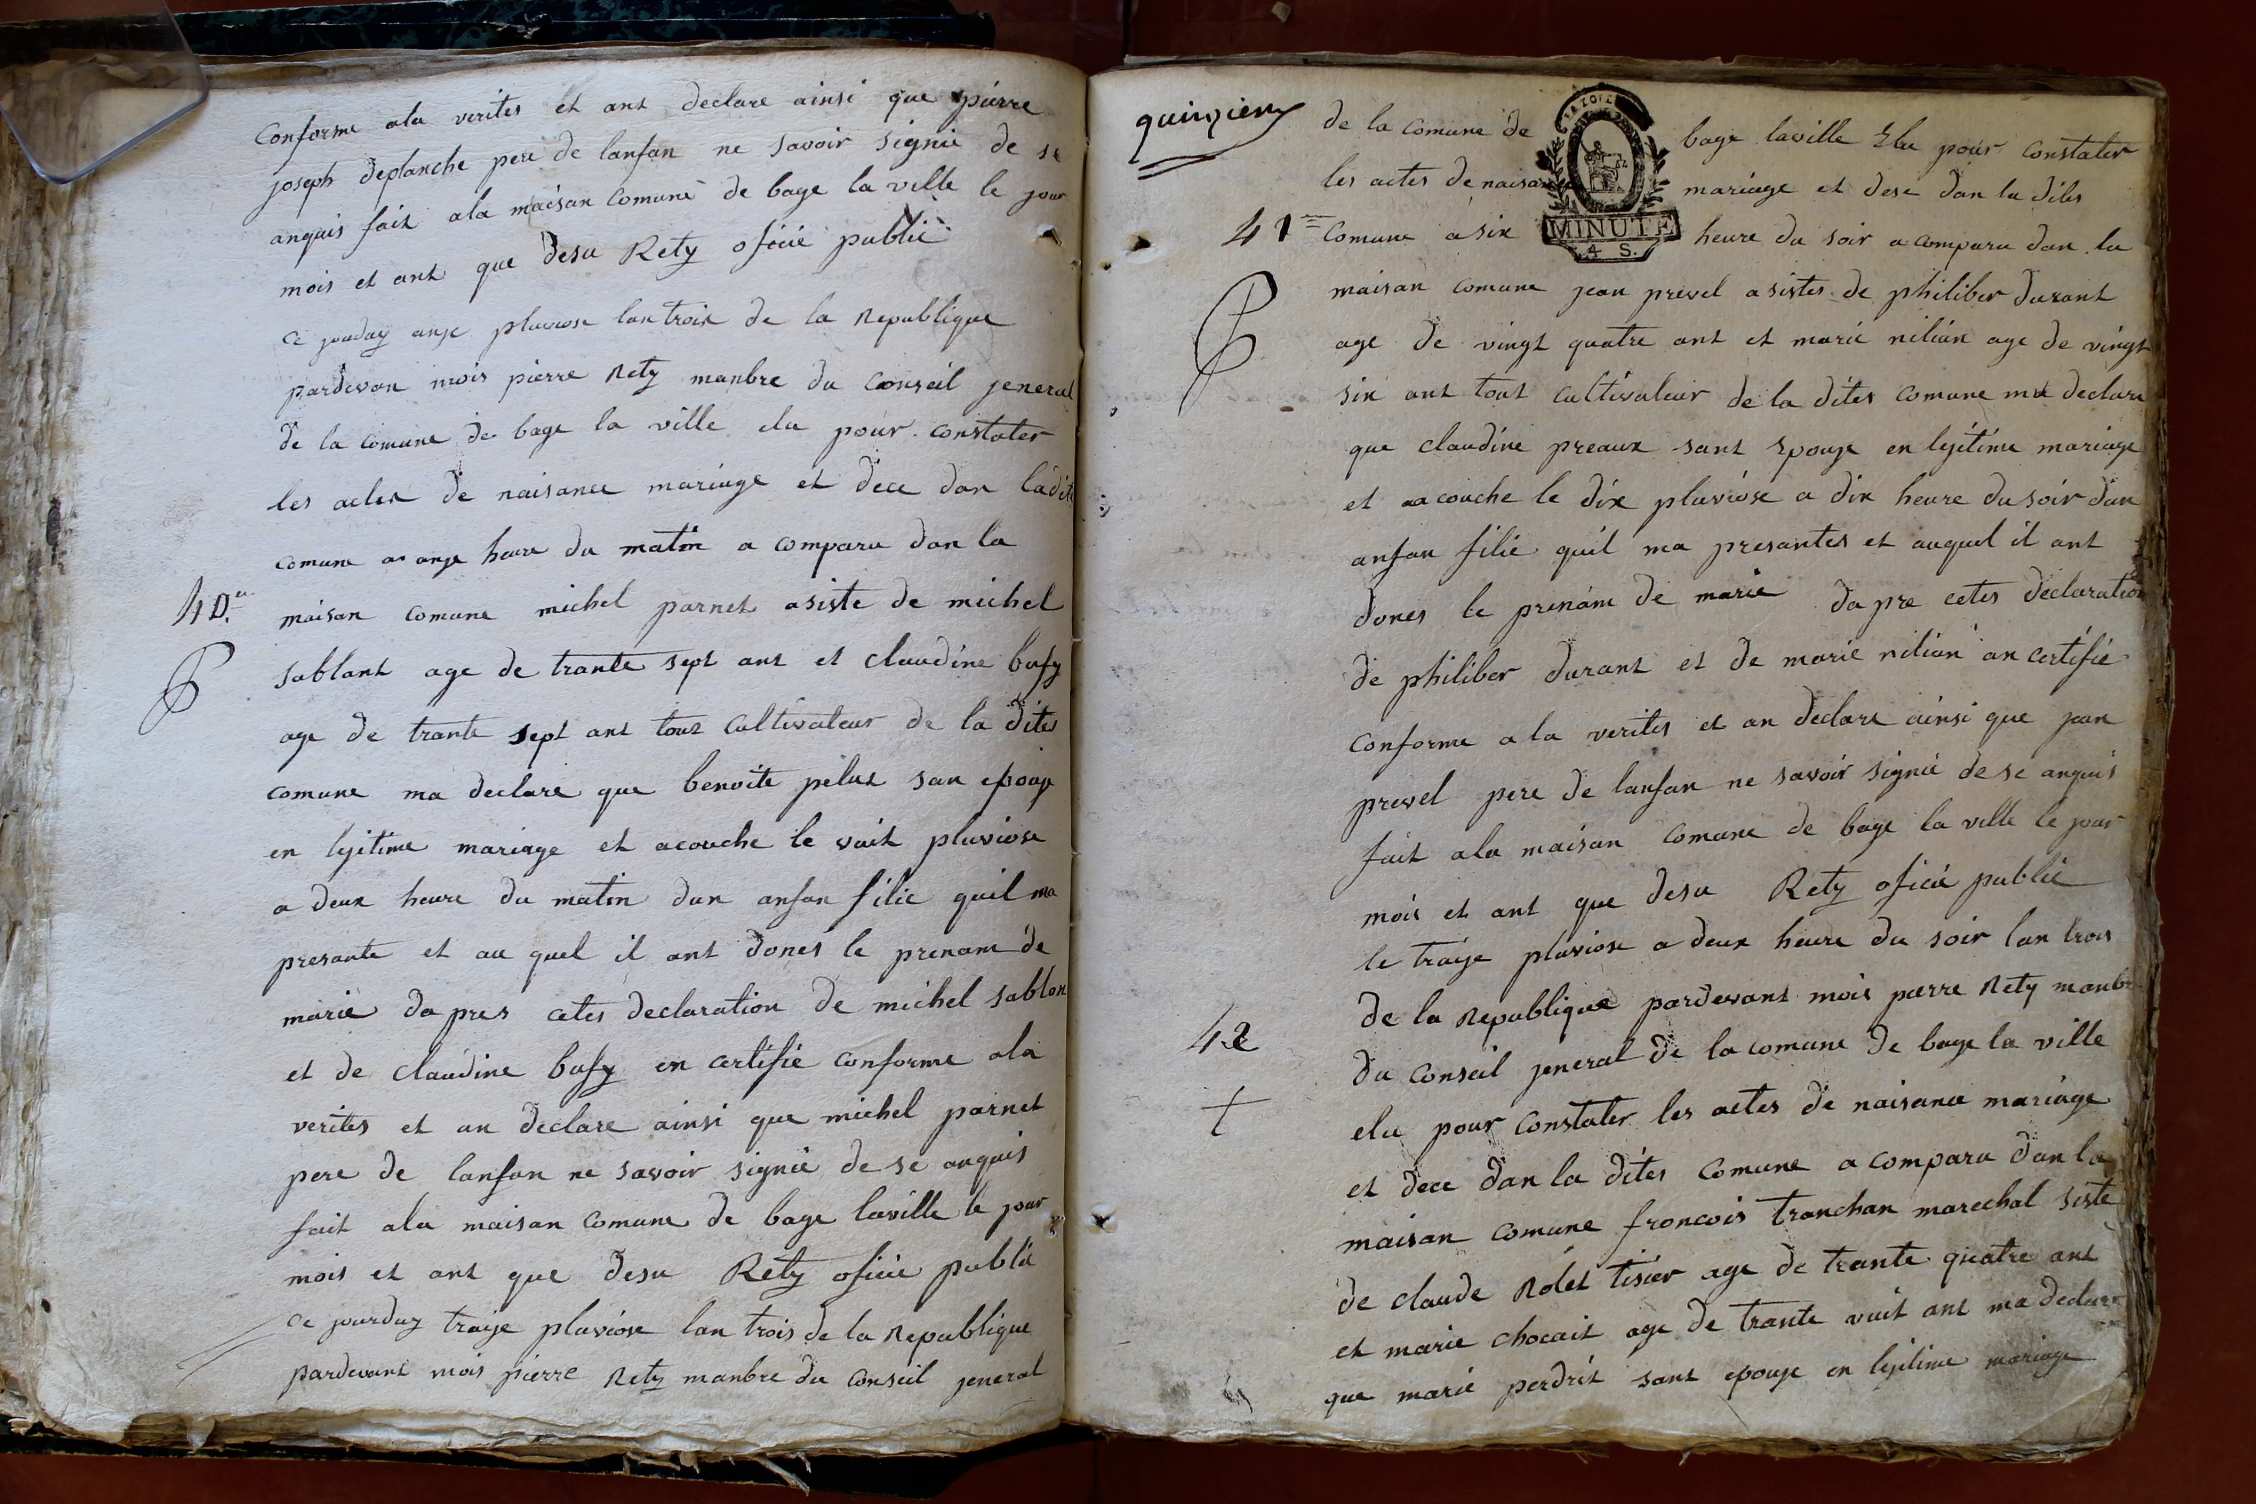 conforme ala verites et ant declare ainsi que pierre
joseph deplanche pere de lanfan ne savoir signié de se
anquis fait ala maisan comune de bage la ville le jour
mois et ant que desu Rety oficié publié
ce jourduy anze pluviose lan troix de la Republique
pardevan mois pierre Rety manbre du conseil jeneral
de la comune de bage la ville elu pour constater
les actes de naisance mariage et dece dan ladite
comune a anze heure du matin a comparu dan la
40.
maisan comune michel parnet asiste de michel
sablant age de trante sept ant et claudine bufy
age de trante sept ant tout cultivateur de la dites
comune ma declare que benoite pelut san epouze
en lejitime mariage et acouche le vuit pluviose
a deux heure du matin dun anfan filie quil ma
presante et au quel il ant dones le prenam de
marie da pres cetes declaration de michel sablon
et de claudine bufy en certifie conforme ala
verites et an declare ainsi que michel parnet
pere de lanfan ne savoir signié de se anquis
fait ala maisan comune de bage laville le jour
mois et ant que desu Rety oficié publié
ce jourduy traize pluviose lan trois de la Republique
pardevant mois pierre Rety manbre du conseil jeneral
quinzieme
de la comune de bage laville Elu pour constater
les actes de naisan mariage et dese dan la dites
MINUTE
4 S.
41
comune a six heure du soir a comparu dan la
maisan comune jean prevel asistes de philiber durant
age de vingt quatre ant et marie nilian age de vingt
six ant tout cultivateur de la dites comune ma declare
que claudine preaux sant Epouze en lejitime mariage
et acouche le dix pluviose a dix heure du soir dun
anfan filie quil ma presantes et auquel il ant
dones le prenam de marie da pre cetes declaration
de philiber durant et de marie nilian an certifie
conforme a la verites et an declare ainsi que jean
prevel pere de lanfan ne savoir signié de se anquis
fait ala maisan comune de bage la ville le jour
mois et ant que desu Rety oficié publié
le traize pluviose a deux heure du soir lan trois
de la Republique pardevant mois pierre Rety manbre
42
du conseil jeneral de la comune de bage la ville
elu pour constater les actes de naisance mariage
et dece dan la dites comune a comparu dan la
maisan comune francois tranchan marechal siste
de claude Rolet tisier age de trante quatre ant
et marie chocait age de trante vuit ant ma declare
que marie perdrit sant epouze en lejitime mariage